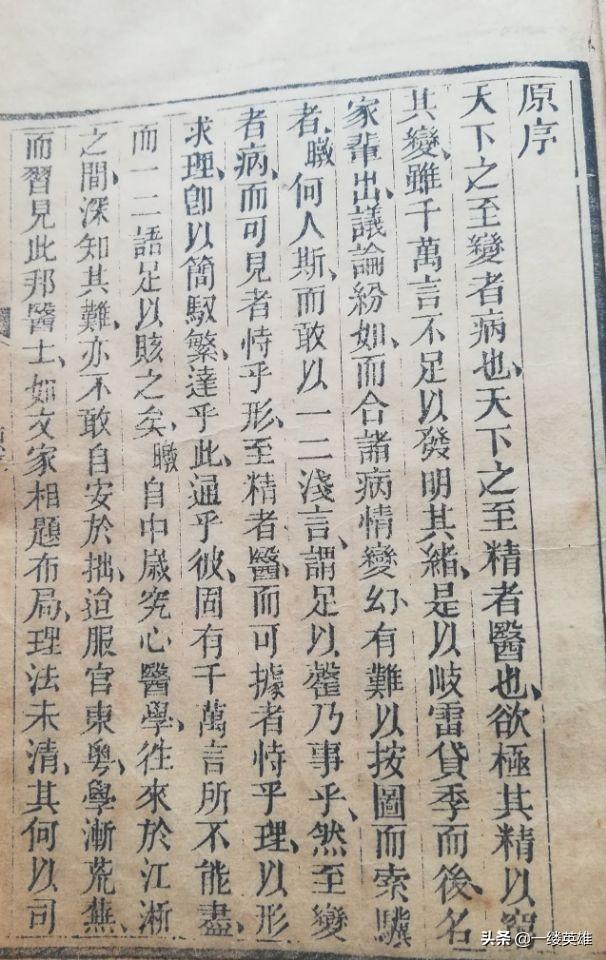 原序
天下之至變者病也、天下之至精者醫也、欲極其精以窮
其變、雖千萬言不足以發明其緒、是以岐雷貸季而後、名
家輩出、議論紛如、而合諸病情變幻、有難以按圖而索驥
者、何人斯、而敢以一二淺言、謂足以罄乃事乎、然至變
者病、而可見者恃乎形、至精者醫、而可據者恃乎理、以形
求理、卽以簡馭繁、達乎此、通乎彼、固有千萬言所不能盡、
而一二語足以賅之矣、自中歲究心醫學、徃來於江浙
之間、深知其難、亦不敢自安於拙、迨服官東粵、學漸荒蕪、
而習見此邦醫士、如文家相題布局、理法未清、其何以司
头条 @一缕英雄